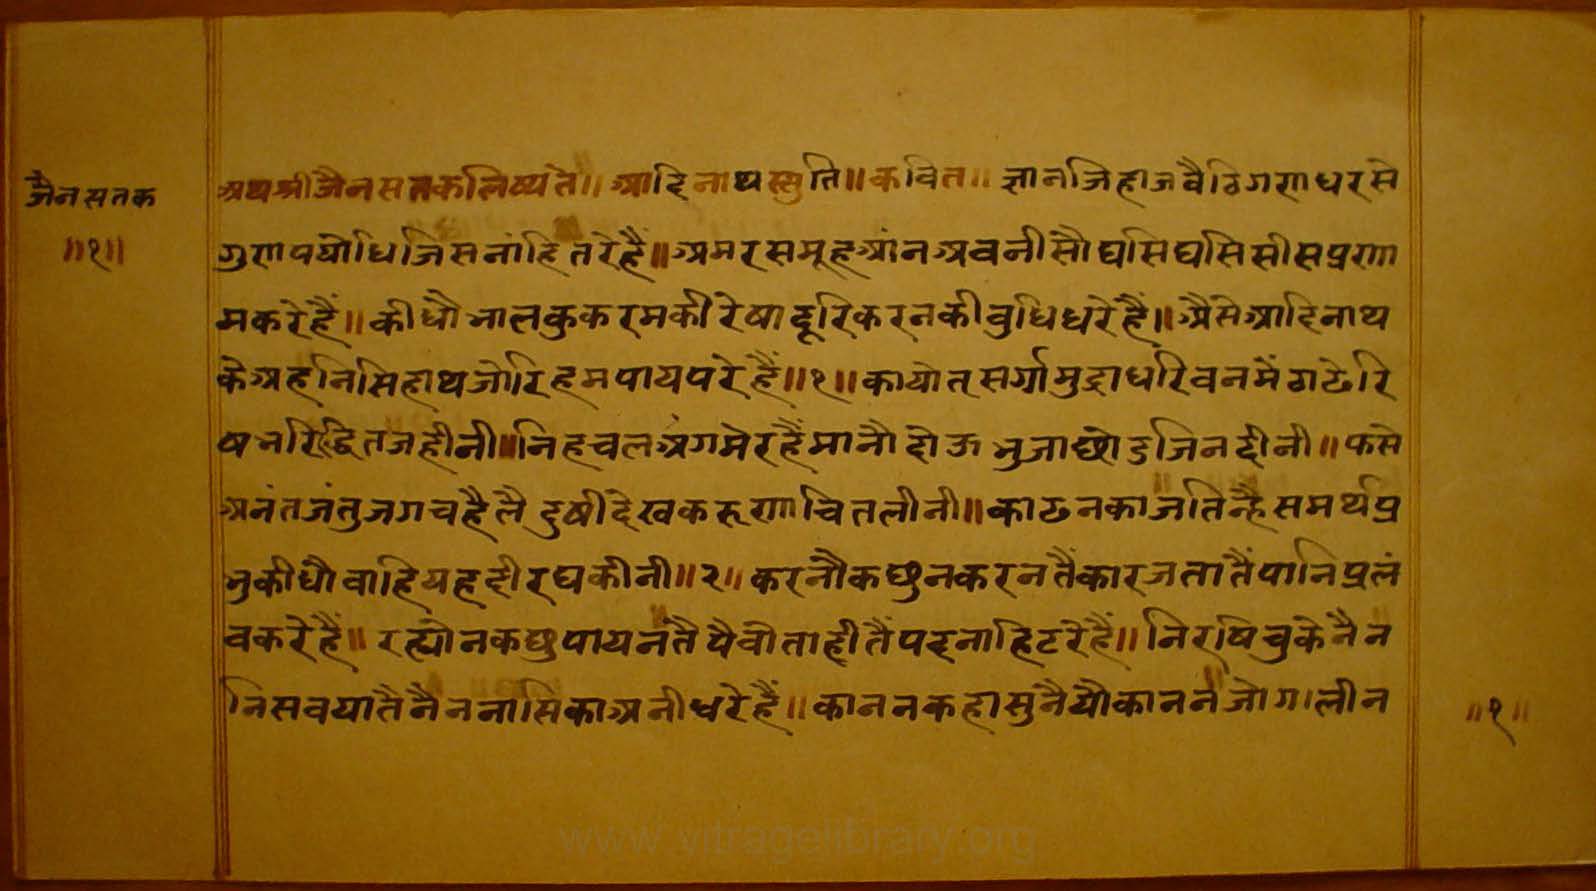 जैनसतक
॥१॥
अथश्रीजैनसतकलिष्यते॥ आदिनाथस्तुति॥ कवित॥ ज्ञानजिहाजवैठिगणधरसे
गुणपयोधिजिसनांहितरेहैं॥ अमरसमूहआंनअवनीसौघसिघसिसीसप्रणा
मकरेहैं॥ कीधौभालकुकरमकीरेषादूरिकरनकीवुधिधरेहैं॥ अैसेआदिनाथ
केअहनिसिहाथजोरिहमपायपरेहैं॥१॥ कायोतसर्गामुद्राधरिवनमेंठाढेरि
षभरिद्धितजहीनी॥ निहचलअंगमेरहैंमानौदोऊभुजाछोडजिनदीनी॥ फसे
अनंतजंतुजगचहैलैदुषीदेखकरूणाचितलीनी॥ काठनकाजतिन्हैसमर्थप्र
भुकीधौवाहियहदीरघकीनी॥२॥ करनौकछुनकरनतैंकारजतातैंपानिप्रलं
वकरेहैं॥ रह्योनकछुपायनंतैपैवोताहीतैंपदनाहिटरेहैं॥ निरषिचुकेनैन
निसवयातैनैननासिकाअनीधरेहैं॥ काननकहासुनैयौकाननंजोगालीन
॥१॥
www.vitragelibrary.org